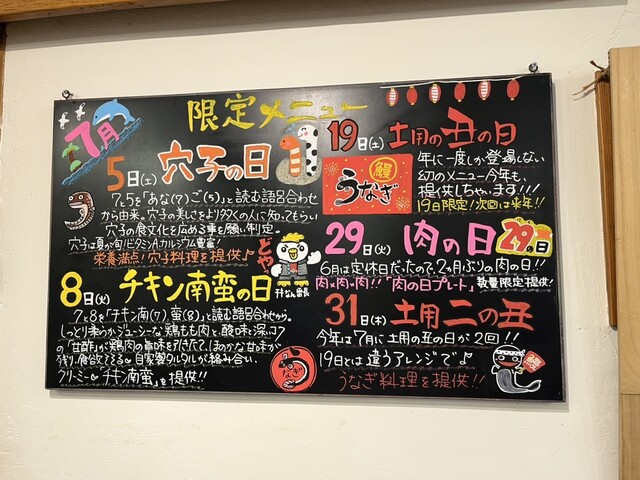 7月
限定メニュー
5日(土) 穴子の日
7と5を「あな(7)ご(5)」と読む語呂合わせ
から由来。穴子の美しさをより多くの人に知ってもらい
穴子の食文化を広める事を願い制定。
穴子は夏が旬!ビタミンAカルシウム豊富!
栄養満点!穴子料理を提供♪
8日(火) チキン南蛮の日
7と8を「チキン南(7)蛮(8)」と読む語呂合わせから。
しっとり柔らかジューシーな鶏もも肉と、酸味と深いコク
の「甘酢」が鶏肉の旨味を引きたて、ほのかな甘味が
残り、食欲そそる 自家製タルタルが絡み合い
クリーミーチキン南蛮」を提供!!
どや
うなぎ
19日(土) 土用の丑の日
鰻
うなぎ
年に一度しか登場しない
幻のメニュー今年も、
提供しちゃいます!!!
19日限定!次回は来年!!
29日(火) 肉の日
29の日
6月は定休日だったので、2ヶ月ぶりの肉の日!!
肉×肉×肉!!「肉の日プレート」数量限定提供!
31日(木) 土用二の丑
今年は7月に土用の丑の日が2回!!
19日とは違うアレンジで♪
うなぎ料理を提供!!